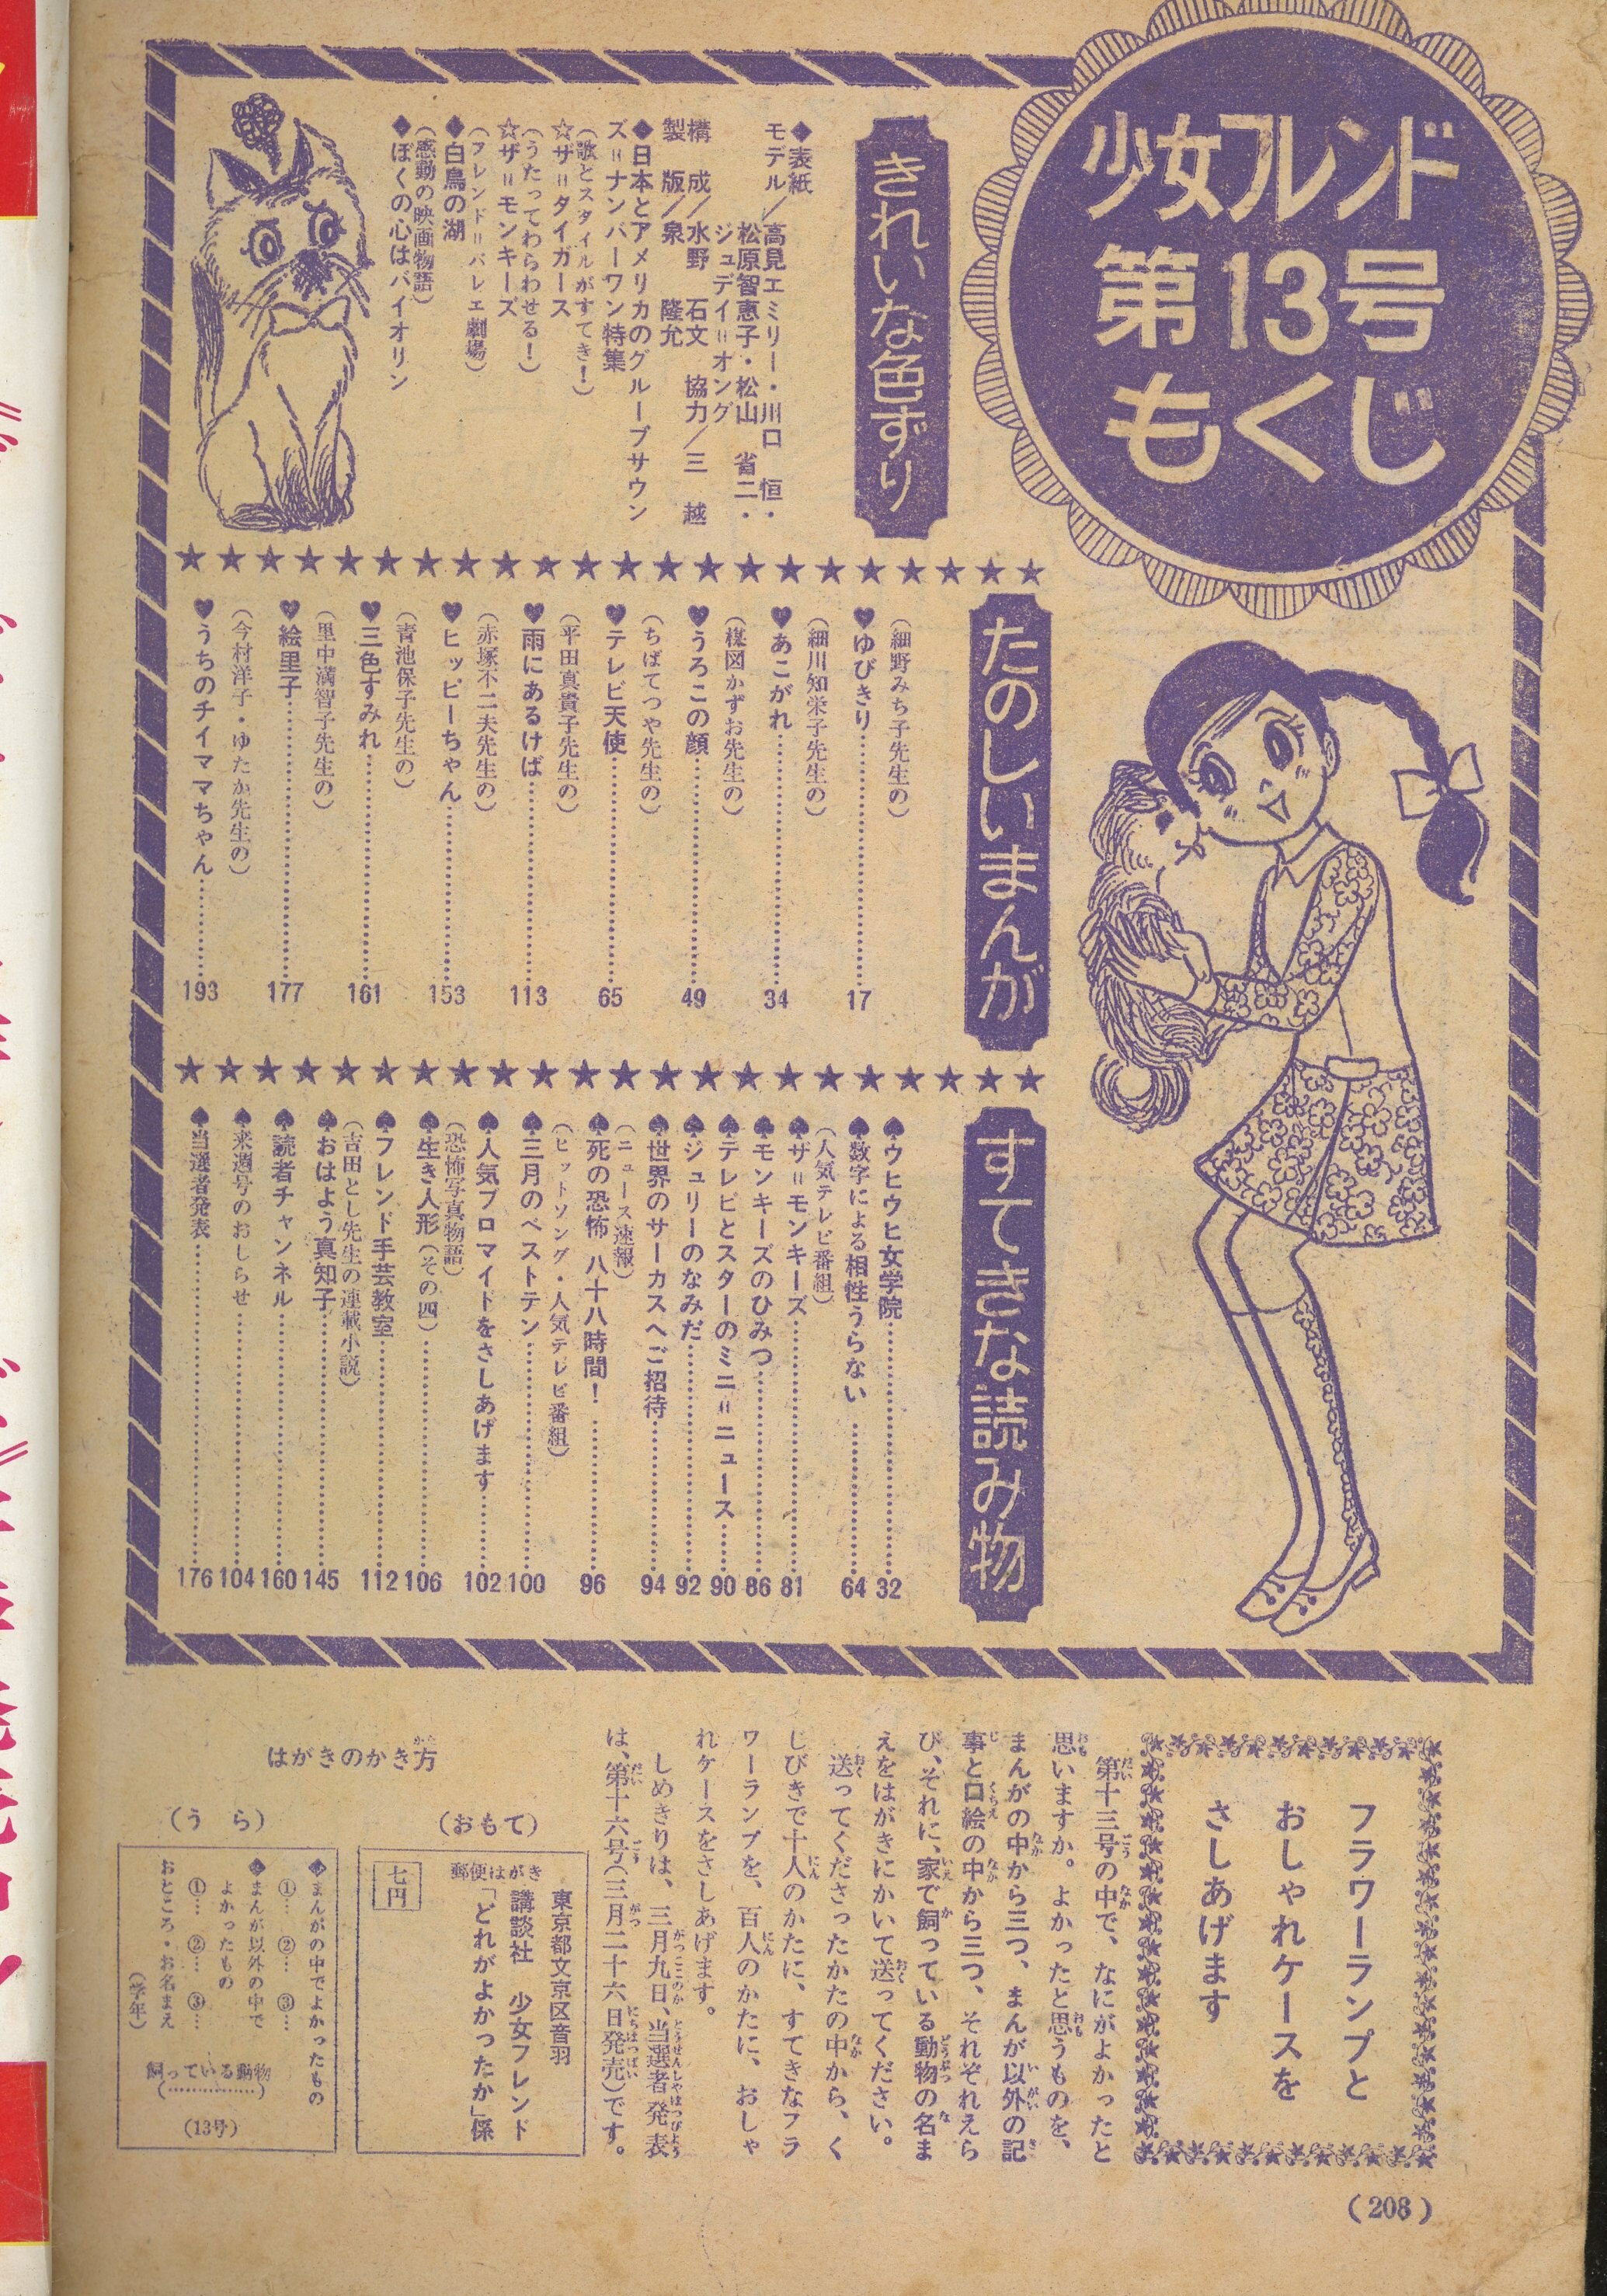 少女フレンド
第13号
もくじ
きれいな色ずり
◆表紙
モデル／高見エミリー・川口　恒・
松原智恵子・松山　省二・
ジュデイ＝オング
構　成／水野　石文　協力／三　越
製　版／泉　　隆允
◆日本とアメリカのグループサウン
ズ＝ナンバーワン特集
（歌とスタイルがすてき！）
☆ザ＝タイガース
（うたってわらわせる！）
☆ザ＝モンキーズ
（フレンド＝バレエ劇場）
◆白鳥の湖
（感動の映画物語）
◆ぼくの心はバイオリン
たのしいまんが
（細野みち子先生の）
♥ゆびきり……17
（細川知栄子先生の）
♥あこがれ……34
（楳図かずお先生の）
♥うろこの顔……49
（ちばてつや先生の）
♥テレビ天使……65
（平田真貴子先生の）
♥雨にあるけば……113
（赤塚不二夫先生の）
♥ヒッピーちゃん……153
（青池保子先生の）
♥三色すみれ……161
（里中満智子先生の）
♥絵里子……177
（今村洋子・ゆたか先生の）
♥うちのチイママちゃん……193
すてきな読み物
♠ウヒウヒ女学院……32
♠数字による相性うらない……64
（人気テレビ番組）
♠ザ＝モンキーズ……81
♠モンキーズのひみつ……86
♠テレビとスターのミニ＝ニュース……90
♠ジュリーのなみだ……92
♠世界のサーカスへご招待……94
（ニュース速報）
♠死の恐怖　八十八時間！……96
（ヒットソング・人気テレビ番組）
♠三月のベストテン……100
♠人気ブロマイドをさしあげます……102
（恐怖写真物語）
♠生き人形（その四）……106
♠フレンド手芸教室……112
（吉田とし先生の連載小説）
♠おはよう真知子……145
♠読者チャンネル……160
♠来週号のおしらせ……104
♠当選者発表……176
フラワーランプと
おしゃれケースを
さしあげます
第十三号の中で、なにがよかったと
思いますか。よかったと思うものを、
まんがの中から三つ、まんが以外の記
事と口絵の中から三つ、それぞれえら
び、それに、家で飼っている動物の名ま
えをはがきにかいて送ってください。
送ってくださったかたの中から、く
じびきで十人のかたに、すてきなフラ
ワーランプを、百人のかたに、おしゃ
れケースをさしあげます。
しめきりは、三月九日、当選者発表
は、第十六号（三月二十六日発売）です。
はがきのかき方
（おもて）
郵便はがき
七円
東京都文京区音羽
講談社　少女フレンド
「どれがよかったか」係
（うら）
◆まんがの中でよかったもの
①…　②…　③…
◆まんが以外の中で
よかったもの
①…　②…　③…
おところ・お名まえ
（学年）
飼っている動物
（…………）
（13号）
（208）